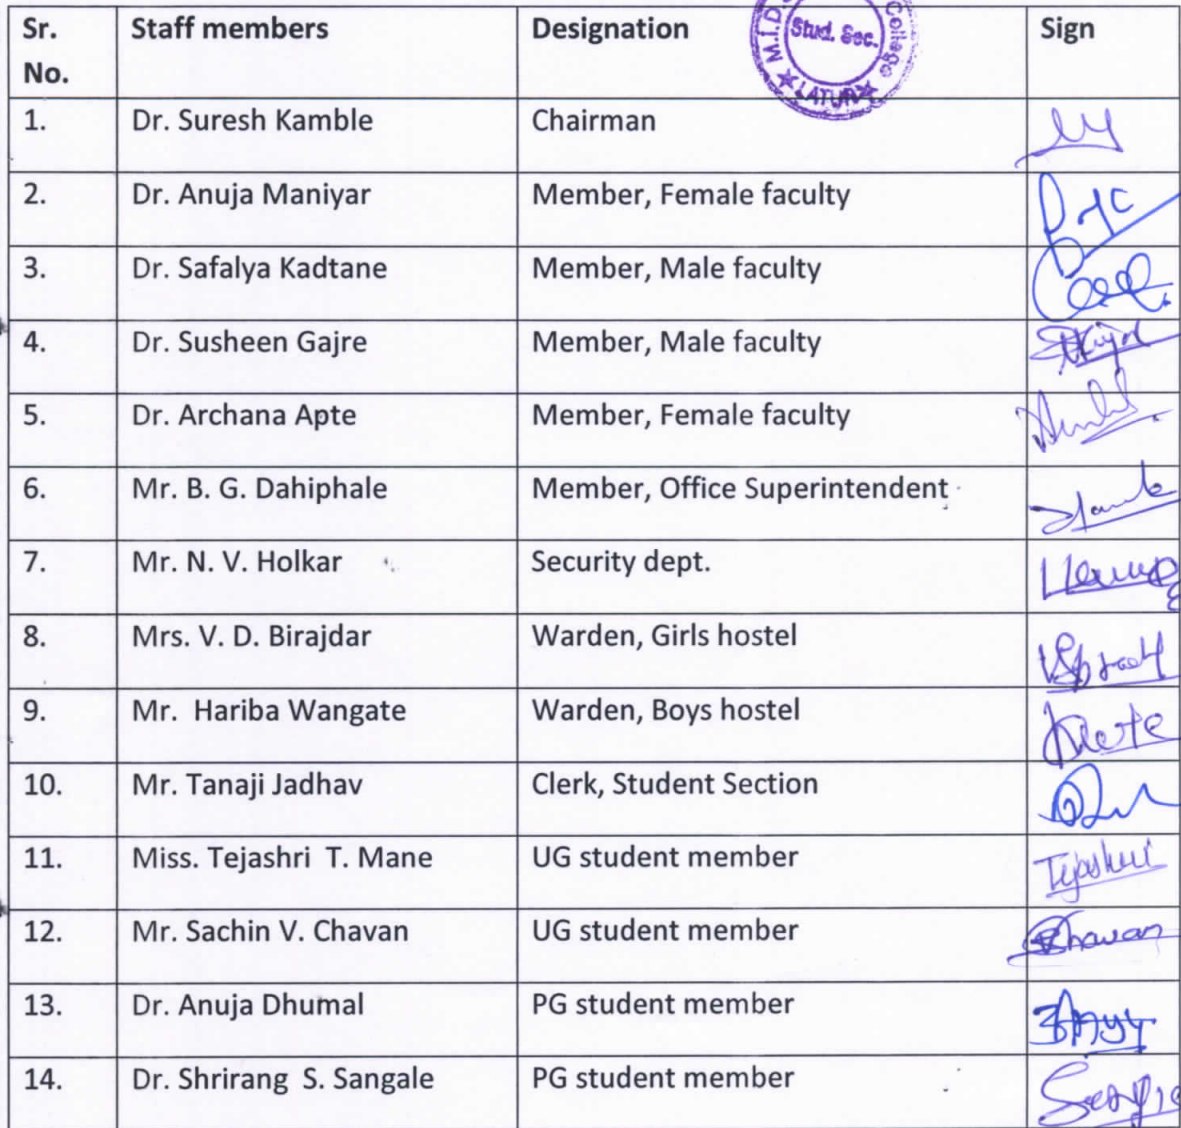 Sr. No. Staff members Designation Sign
M.I.D. College
Stud. Sec.
LATUR
1. Dr. Suresh Kamble Chairman
2. Dr. Anuja Maniyar Member, Female faculty
3. Dr. Safalya Kadtane Member, Male faculty
4. Dr. Susheen Gajre Member, Male faculty
5. Dr. Archana Apte Member, Female faculty
6. Mr. B. G. Dahiphale Member, Office Superintendent
7. Mr. N. V. Holkar Security dept.
8. Mrs. V. D. Birajdar Warden, Girls hostel
9. Mr. Hariba Wangate Warden, Boys hostel
10. Mr. Tanaji Jadhav Clerk, Student Section
11. Miss. Tejashri T. Mane UG student member Tejashri
12. Mr. Sachin V. Chavan UG student member Chavan
13. Dr. Anuja Dhumal PG student member
14. Dr. Shrirang S. Sangale PG student member